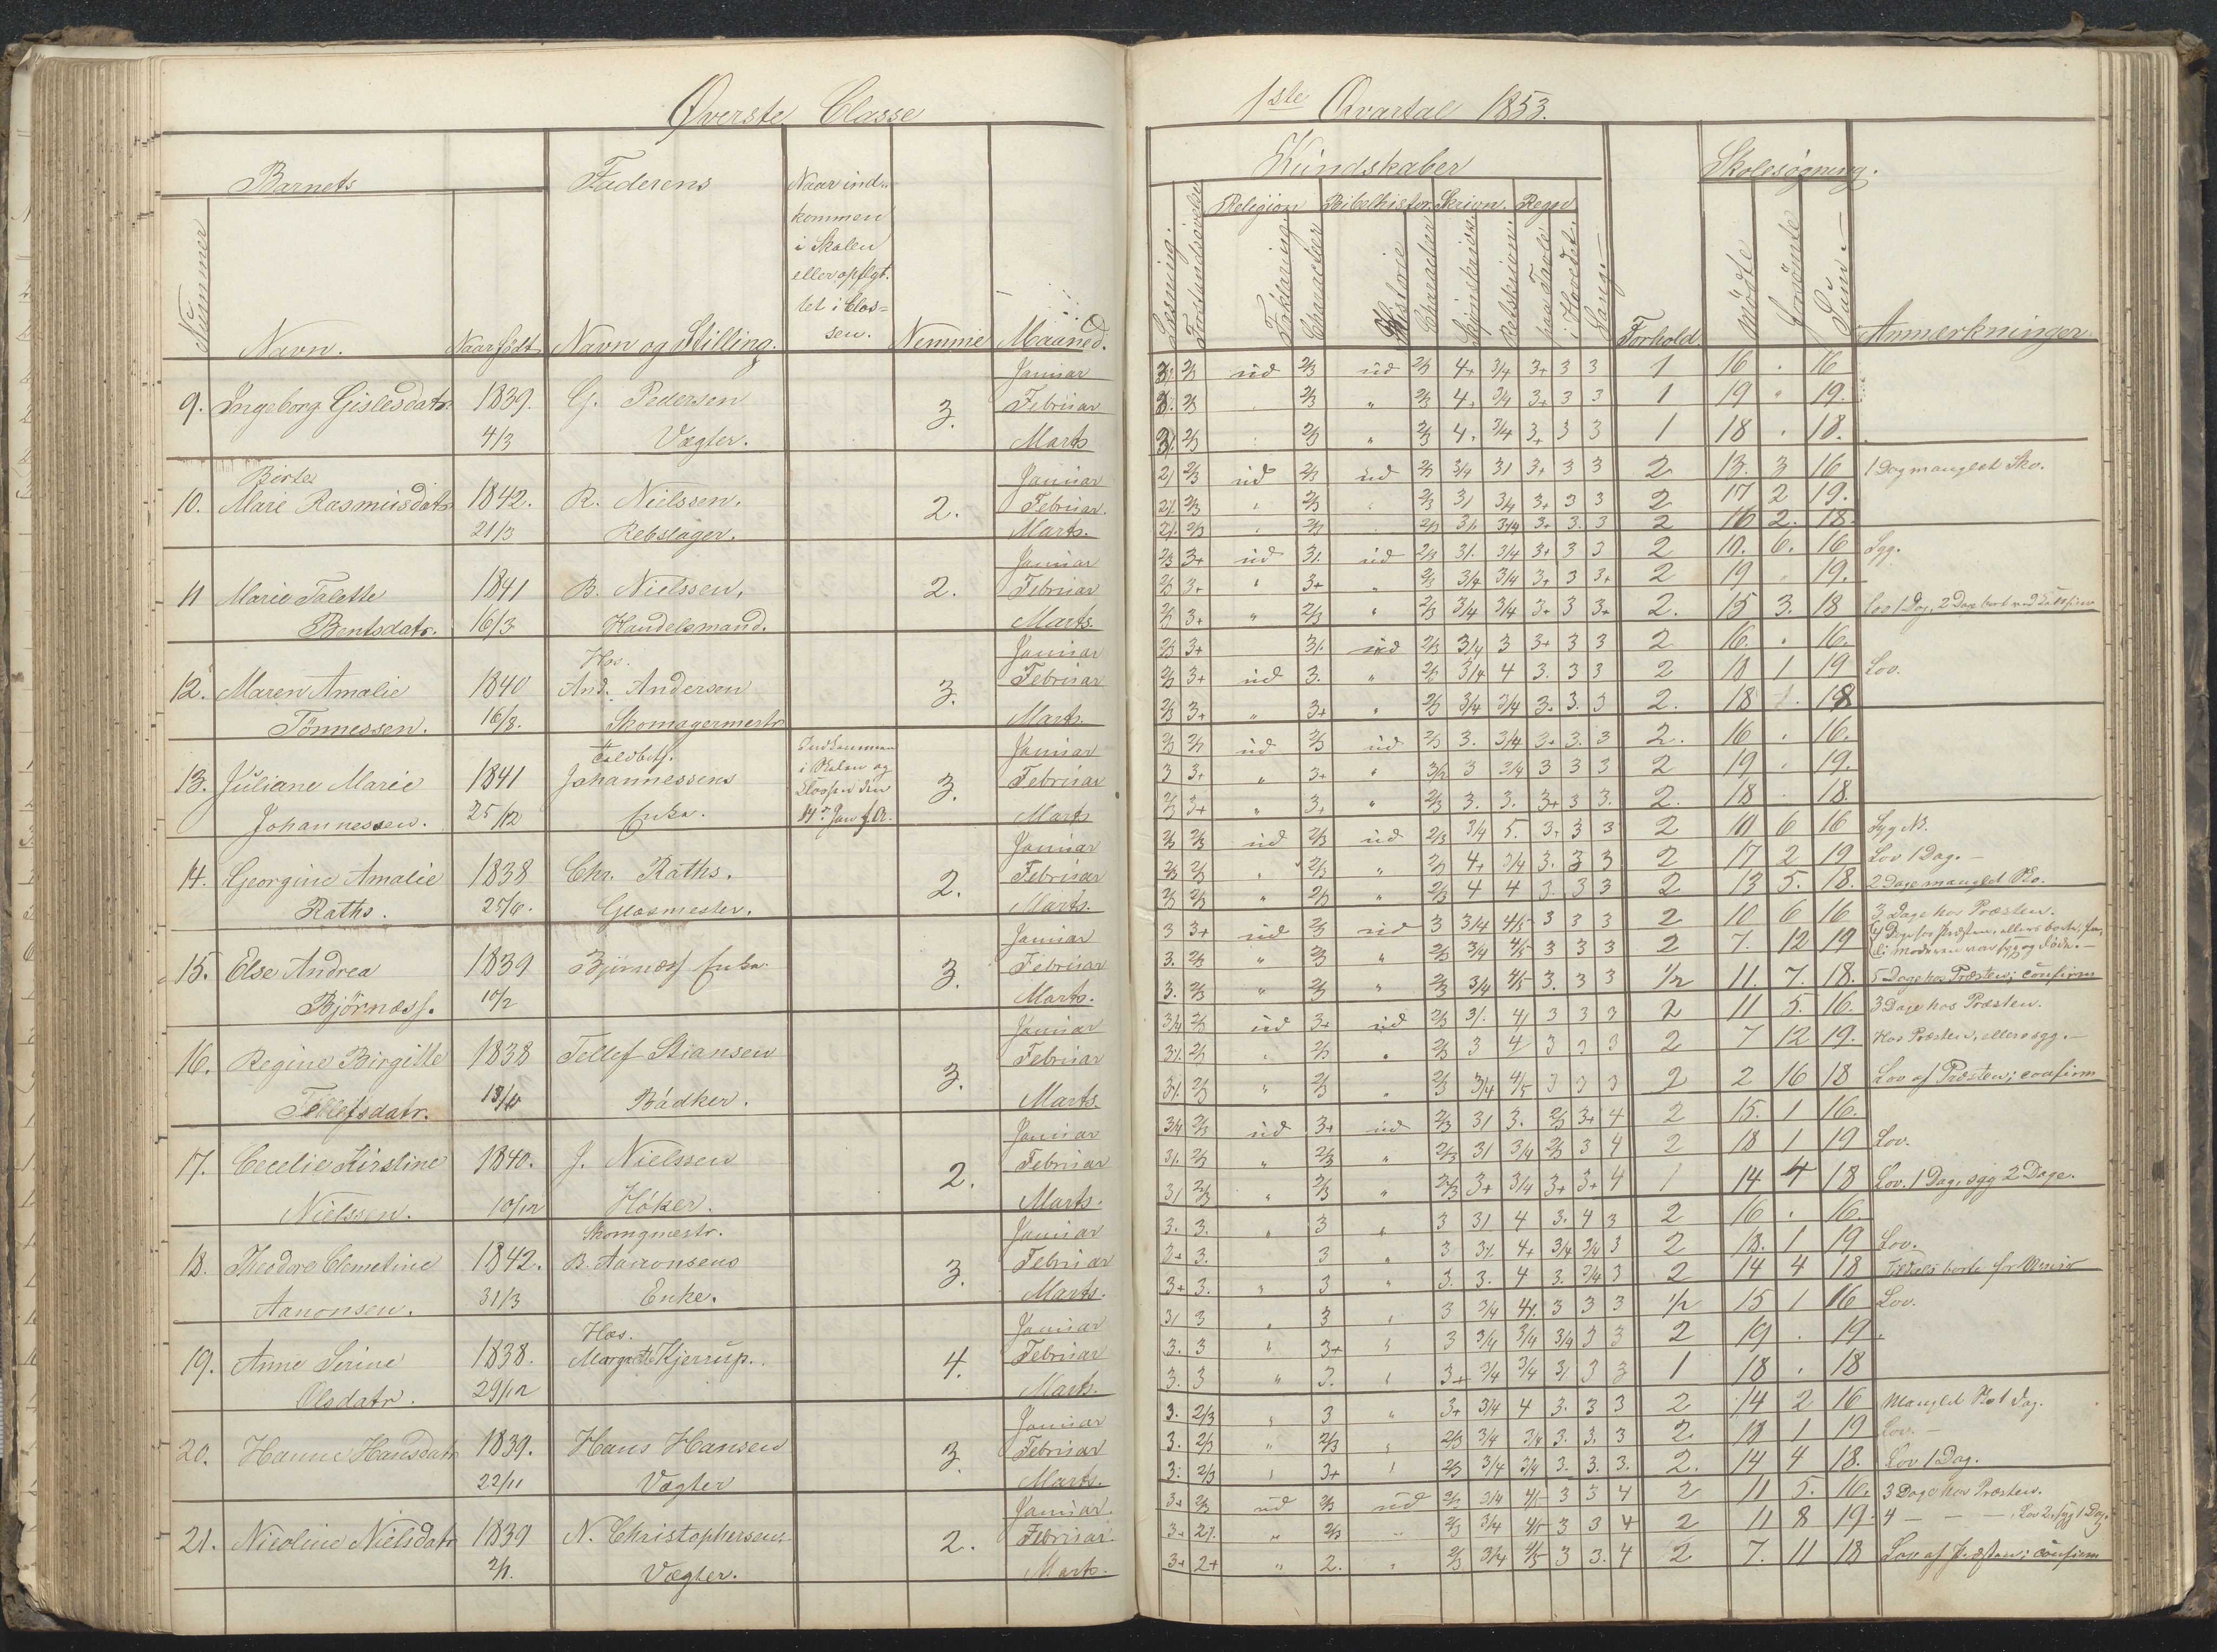 Øverste Classe
Barnets
Faderens
Naar ind-
kommen
i Skolen
eller opflyt-
tet i Clas=
sen.
Nummer
Navn.
Naar født
Navn og Stilling.
Nemme
Maaned.
9. Ingeborg Gislesdatr. 1839. G. Pedersen 3. Januar
Februar
4/3 Vægter. Marts
Birte
10. Marie Rasmusdatr 1842. R. Nielssen. 2. Januar
Februar.
21/3 Rebslager. Marts.
11 Marie Talette 1841 B. Nielssen, 2. Januar
Februar
Bentsdatr. 16/3 Handelsmand. Marts.
Hos.
12. Maren Amalie 1840 And. Andersen 3. Januar
Februar
Tönnessen. 16/8. Skomagermestr Marts.
13. Juliane Marie 1841 Johannessens Indkommen
i Skolen og
Classen den
14de Jan f.A. 3. Januar
Februar
Johannessen. 25/12 Enke. Marts
14. Georgine Amalie 1838 Chr. Raths. 2. Januar
Februar
Raths. 25/6. Glasmester. Marts.
15. Else Andrea 1839 Bjørness Enke 3. Januar
Februar
Björness. 10/2 Marts.
16. Regine Birgitte 1838 Tellef Stiansen 3. Januar
Februar
Tellefsdatr. Bödker. Marts.
17. Cecelie Kirstine 1840. J. Nielssen 2. Januar
Februar
Nielssen. 10/12 Höker. Marts.
Skomgmestr.
18. Theodore Clemetine 1842. B. Aanonsens 3. Januar
Februar
Aanonsen. 31/3 Enke. Marts.
Hos.
19. Anne Serine 1838. Margrethe Kjerrup. 4. Januar
Februar
Olsdatr. 29/12 Marts.
20. Hanne Hansdatr 1839. Hans Hansen 3. Januar
Februar
22/11 Vægter Marts.
21. Nicoline Nielsdatr 1839 N. Christophersen. 2. Januar.
Februar.
2/1. Vægter. Marts.
1ste Qvartal 1853.
Kundskaber
Skolesøgning.
Religion Bibelhistor. Skrivn. Regn
Læsning.
Forstandsøvelse
Forklaring
Character
Historie
Character
Skjønskrivn.
Retskrivn.
paa Tavle
i Hovedet.
Sang.
Forhold
Mödte
Forsömte
Sum.
Anmærkninger
ud 2/3 ud 2/3 4+ 3/4 3+ 3 3 1 16 . 16
2/3 " 2/3 4+ 3/4 3+ 3 3 1 19 " 19.
2/3 " 2/3 4. 3/4 3+ 3 3 1 18 . 18.
2/3 ud 2/3 ud 2/3 3/4 31 3+ 3 3 2 13. 3 16 1 Dag manglet Sko.
2/3 2/3 2/3 31 3/4 3+ 3 3 2 17 2 19.
2/3 2/3 2/3 31. 3/4 3+ 3. 3 2 16 2. 18.
2/3 3+ ud 31. ud 2/3 31. 3/4 3+ 3 3 2 10. 6. 16 Syg.
2/3 3+ " 3+ " 2/3 3/4 3/4 3+ 3 3+ 2 19 . 19.
2/3 3+ " 2/3 " 2/3 3/4 3/4 3+ 3 3+ 2. 15 3. 18
2/3 3+ 31. ud 2/3 3/4 3 3+ 3 3 2 16. . 16.
2/3 3+ ud 3. " 2/3 3/4 4 3. 3 3 2 18 1 19 Lov.
2/3 3+ " 3+ " 2/3 3/4 3/4 3+ 3. 3 2. 18 18
2/3 2/3 ud 2/3 ud 2/3 3. 3/4 3+ 3. 3 2. 16 . 16.
3 3+ " 3+ " 3/2 3 3/4 3 3 3 2 19 . 19.
2/3 3+ " 3+ " 2/3 3. 3. 3+ 3 3. 2. 18 . 18.
2/3 2/3 ud 2/3 ud 2/3 3/4 5. 3+ 3 3 2 10 6 16
2/3 2/3 " 2/3 " 2/3 4+ 3/4 3. 3 3 2 17 2 19 Lov 1 Dag.
2/3 2/3 " 2/3 " 2/3 4 4 3. 3 3 2 13 5. 18. 2 Dage manglet Sko.
3 3+ ud 2/3 ud 3 3/4 4/5 3 3 3 2 10 6 16 3 Dage hos Præsten.
3. 2/3 " 2/3 " 2/3 3/4 4/5 3 3 3 2 7. 12 19 4 Dage hos Præsten, ellers borte, for-
di moderen var syg og döde.
3. 2/3 " 2/3 " 2/3 3/4 4/5 3. 3 3 1/2 11. 7. 18. 5 Dage hos Præsten; confirm
3/4 2/3 ud 3+ ud 2/3 31. 41 3 3 3 2 11 5. 16. 3 Dage hos Præsten.
31. 2/3 " 2/3 " 2/3 3 4 3 3 3 2 7 12 19. Hos Præsten, ellers syg.
31. 2/3 " 2/3 " 2/3 3/4 4/5 3 3 3 2 2 16 18 Lov af Præsten; confirm
3/4 2/3 ud 3+ ud 2/3 31 3. 2/3 3+ 4 2 15. 1 16.
31. 2/3 " 2/3 " 2/3 31 3/4 2/3 3 4 2 18 1 19 Lov.
31 2/3 " 2/3 " 2/3 3+ 3/4 3+ 3+ 4 1 14 4 18 Lov. 1 Dag, syg 2 Dage.
3. 3. " 3 " 3 31 4 3. 4 3 2 16 . 16.
3+ 3. 3 " 3 31. 4+ 3/4 3/4 3 2 18. 1 19 Lov.
3+ 3. " 3 " 3. 3. 4 3. 3/4 3 2 14 4 18
31 3 " 3 " 3 3/4 41. 3 3 3 1/2 15 1 16 Lov.
3. 3 " 3+ " 3 3/4 3/4 3/4 3 3 2 19 . 19.
3. 3 " 3. " 3+ 3/4 3/4 31 3 3 1 18 . 18
3. 2/3 " 3 " 3+ 3/4 4 3. 3 3 2 14 2 16
3. 2/3 " 2/3 " 2/3 3/4 3/4 3. 3. 3 2. 18 1 19 Lov.
3. 2/3 " 3+ " 2/3 3/4 3/4 3. 3. 3. 2. 14 4 18. Lov 1 Dag.
3+ 2/3 ud 2/3 ud 2/3 3/4 4/5 3 3 4 2 11 5. 16. 3 Dage hos Præsten.
3+ 21. " 2/3 " 2/3 3/4 4/5 3 3 4 2 11 8 19. 4 — — —, Lov 2, syg 1 Dag.
3+ 2+ " 2. " 2/3 3/4 4/5 3 3. 4 2 7. 11 18 Lov af Præsten; confirm